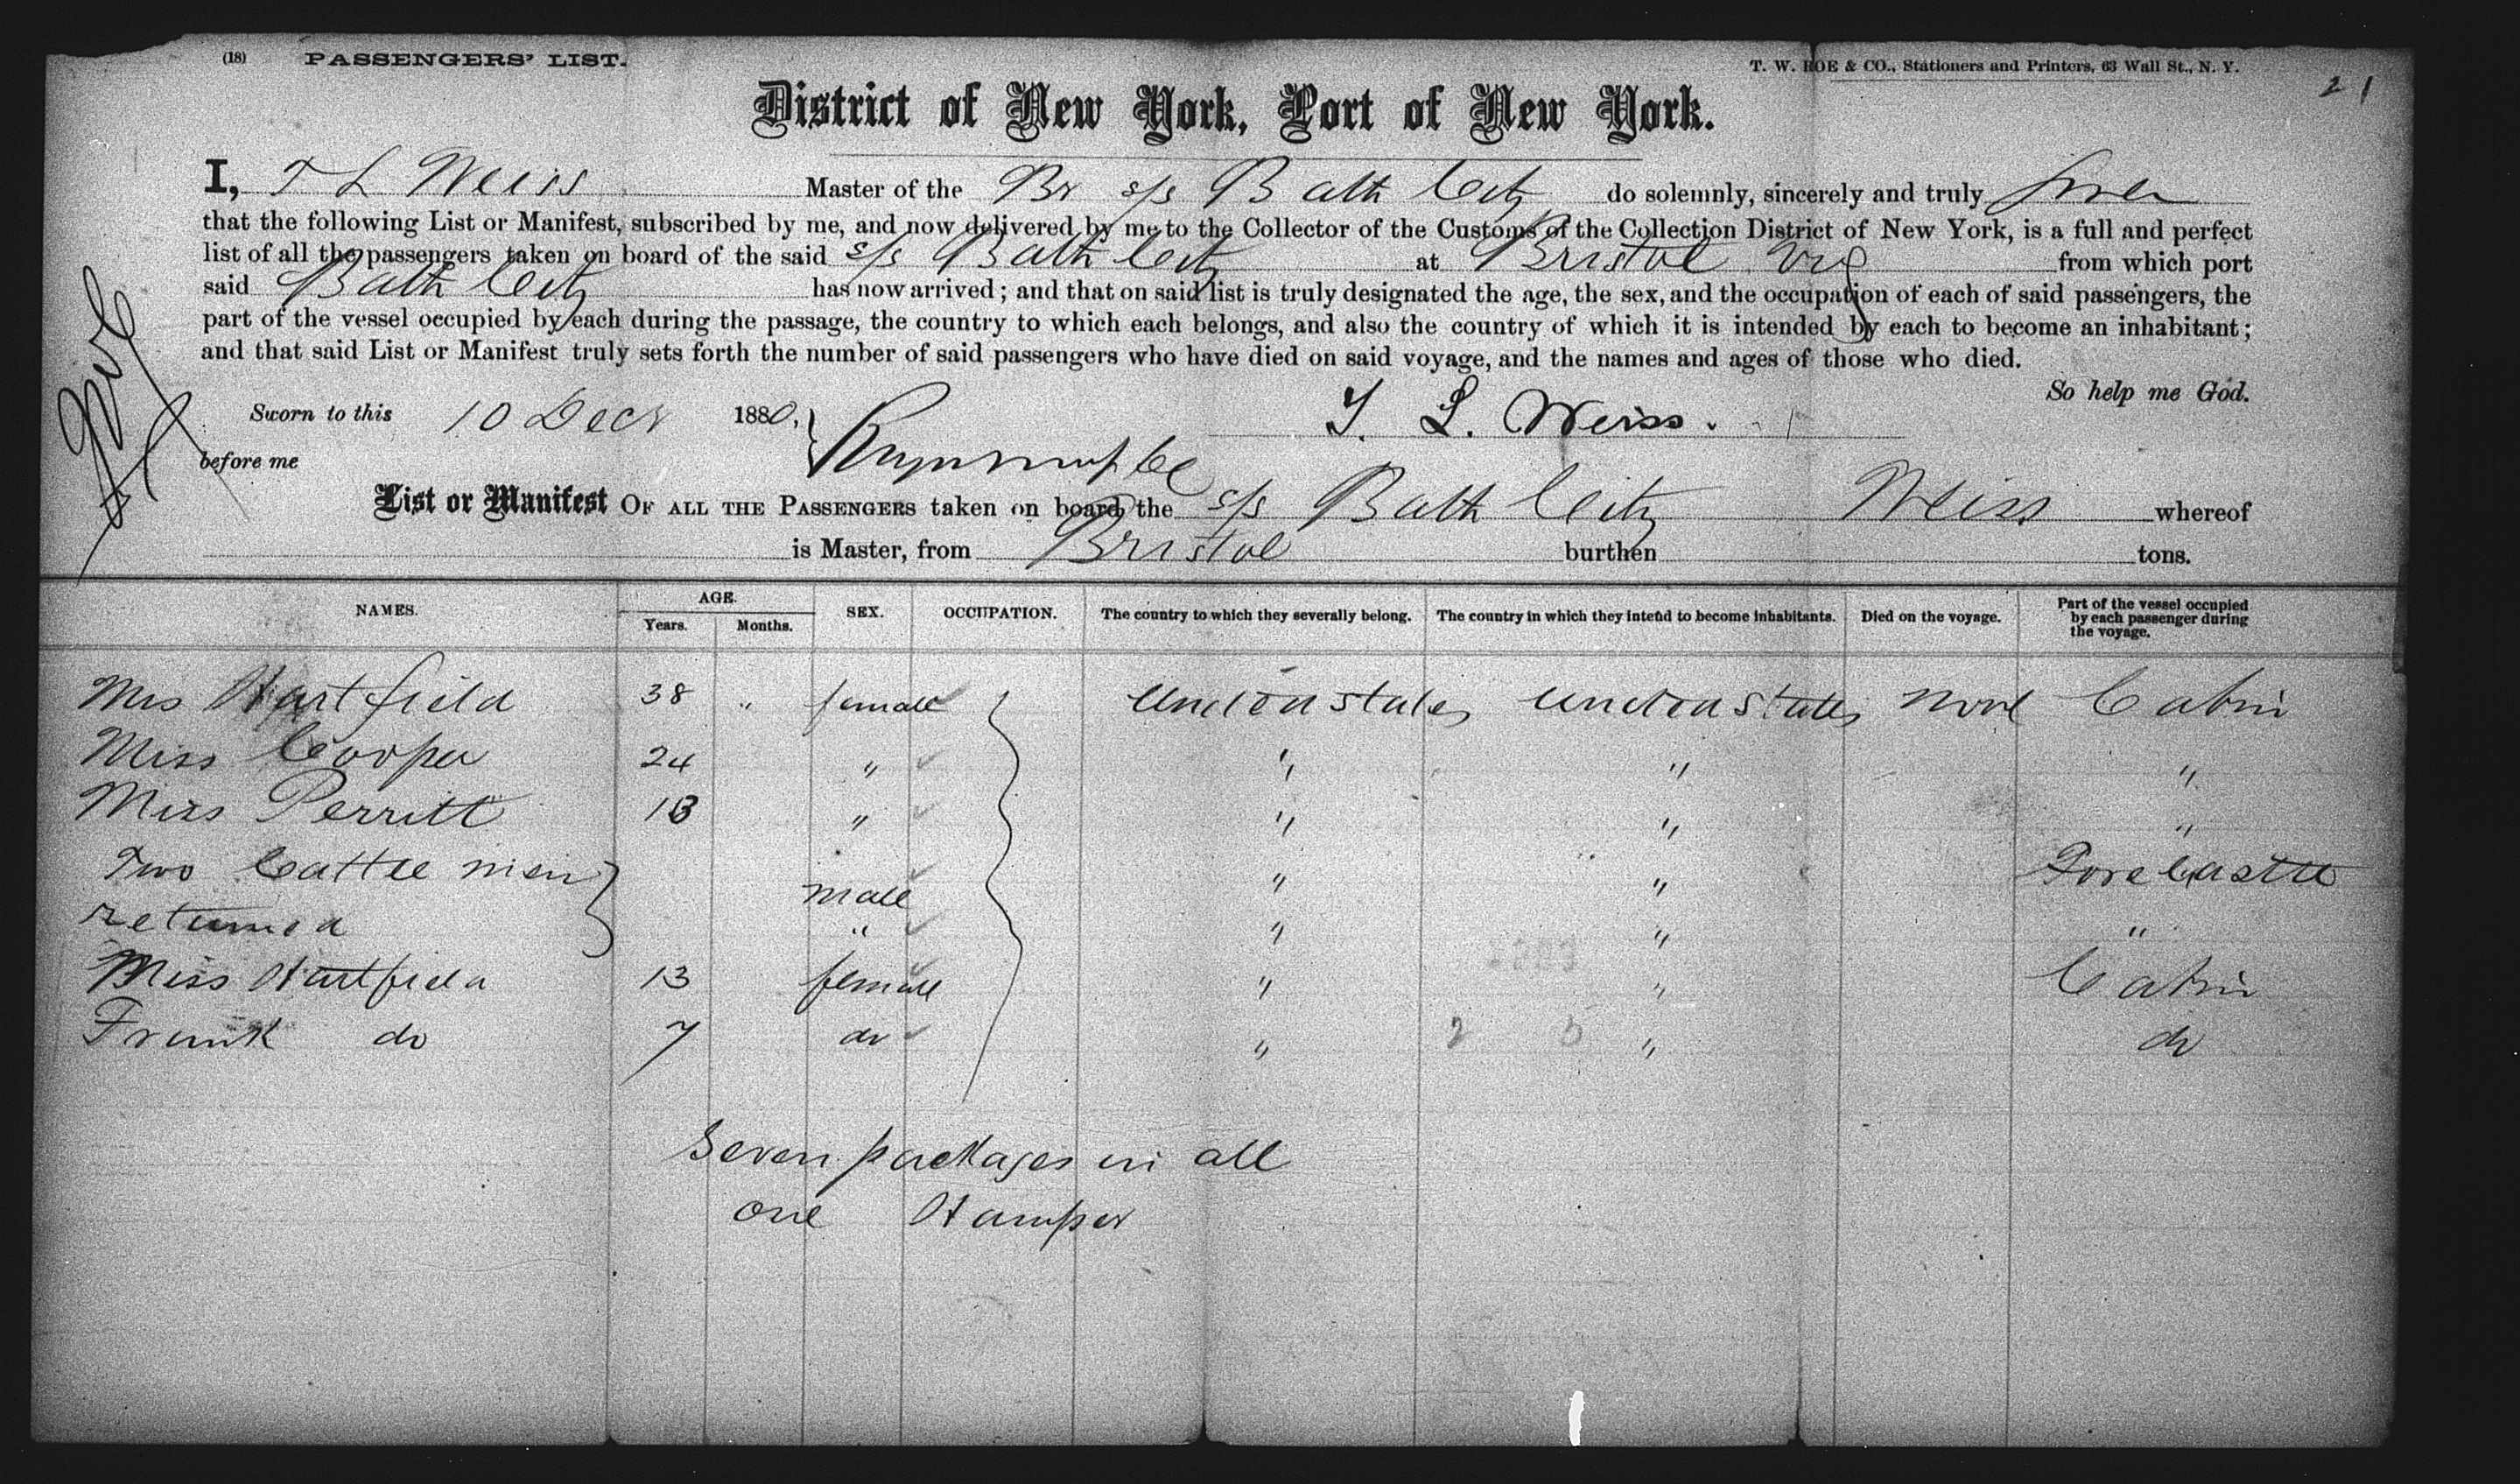 (18) PASSENGERS' LIST.
T. W. ROE & CO., Stationers and Printers, 63 Wall St., N. Y.
21
District of New York, Port of New York.
I, T L Weiss Master of the Br s/s Bath City do solemnly, sincerely and truly swear
that the following List or Manifest, subscribed by me, and now delivered by me to the Collector of the Customs of the Collection District of New York, is a full and perfect
list of all the passengers taken on board of the said s/s Bath City at Bristol from which port
said Bath City has now arrived; and that on said list is truly designated the age, the sex, and the occupation of each of said passengers, the
part of the vessel occupied by each during the passage, the country to which each belongs, and also the country of which it is intended by each to become an inhabitant;
and that said List or Manifest truly sets forth the number of said passengers who have died on said voyage, and the names and ages of those who died.
So help me God.
Sworn to this 10 Decr 1880, T. L. Weiss.
before me
List or Manifest OF ALL THE PASSENGERS taken on board the s/s Bath City Weiss whereof
is Master, from Bristol burthen tons.
NAMES. AGE. Years. Months. SEX. OCCUPATION. The country to which they severally belong. The country in which they intend to become inhabitants. Died on the voyage. Part of the vessel occupied by each passenger during the voyage.
Mrs Hartfield 38 " female United States United States None Cabin
Miss Cooper 24 " " " "
Miss Perritt 18 " " " "
Two Cattle men male " " Fore Castle
returned " " " "
Miss Hartfield 13 female " " Cabin
Frank do 7 do " " do
Seven packages in all
one Hamper